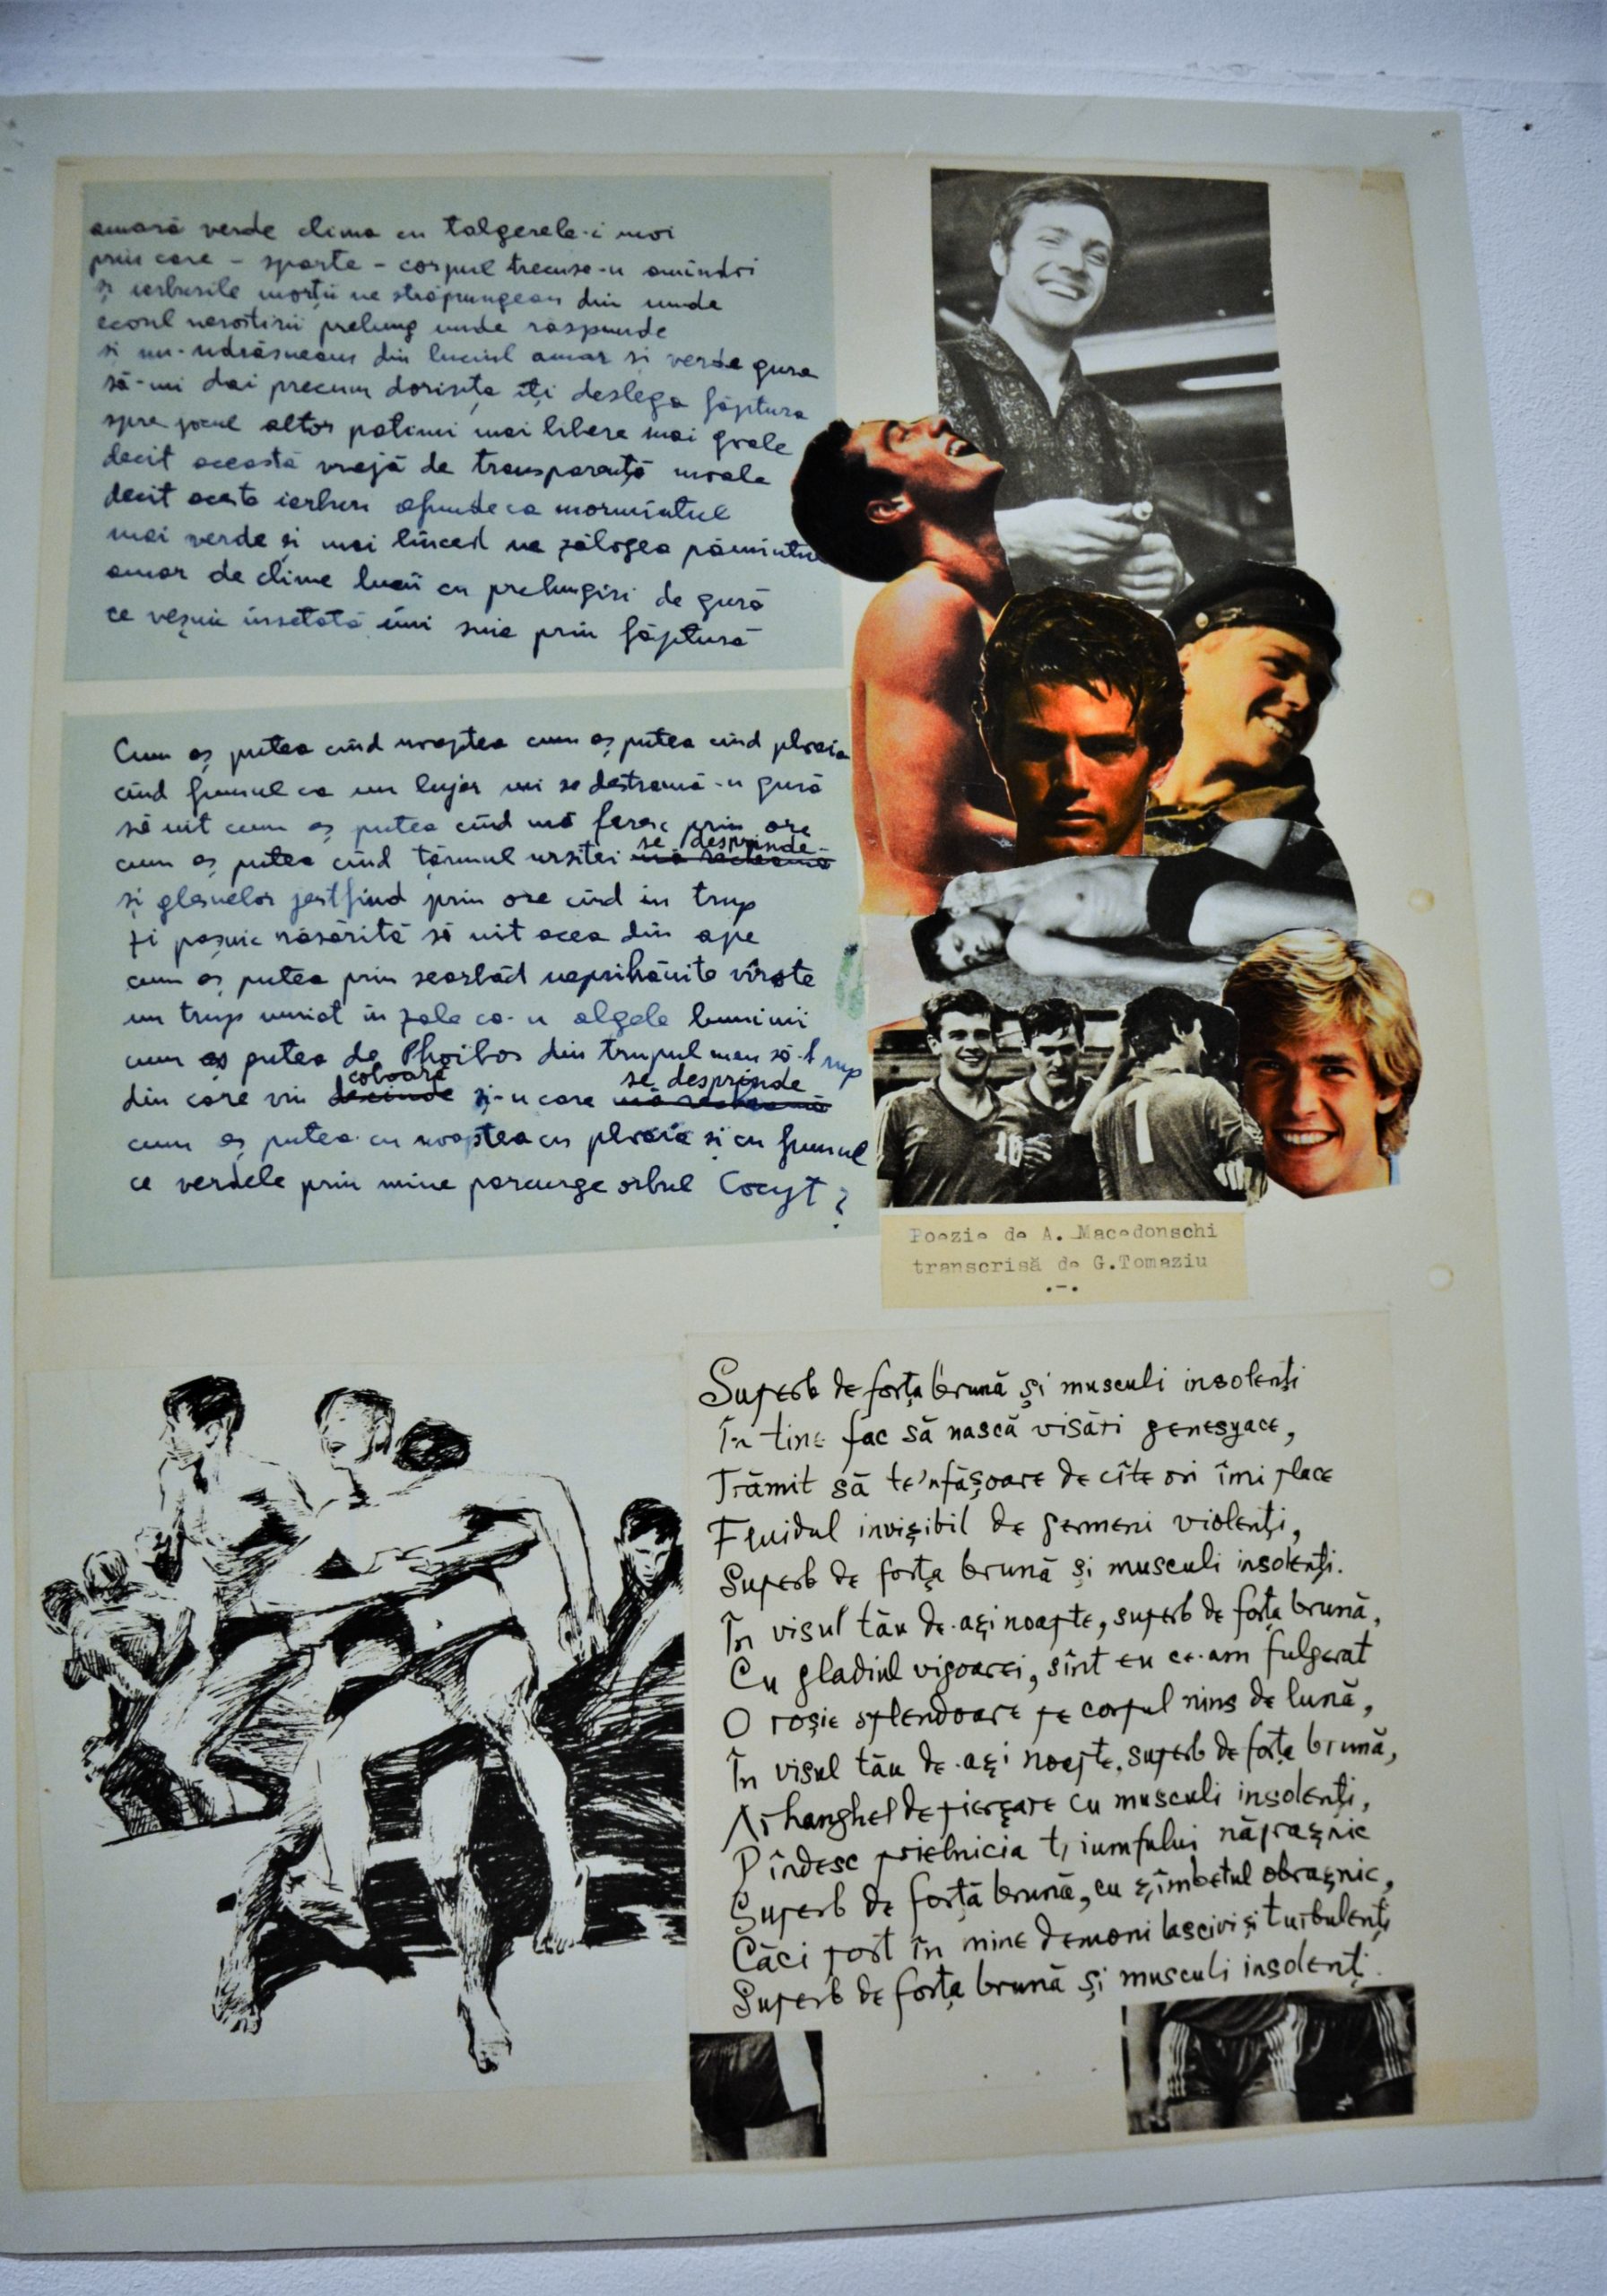 amară verde clima cu talgerele-i moi
prin care - sparte - corpul trecuse-n amîndoi
și ierburile morții ne străpungeau din unde
ecoul nerostirii prelung unde răspunde
și nu-ndrăsneam din luciul amar și verde gura
să-mi dai precum dorința îți deslega făptura
spre jocul altor patimi mai libere mai goale
decît această vrajă de transparență moale
decît aceste ierburi afunde ca mormîntul
mai verde și mai lînced ne zălogea pămîntul
amar de clime lucii cu prelungiri de gură
ce veșnic însetată îmi suie prin făptură
Cum aș putea cînd noaptea cum aș putea cînd ploaia
cînd fumul ca un lujer mi se destramă-n gură
să uit cum aș putea cînd mă feresc prin ore
cum aș putea cînd țărmul ursitei se desprinde
și gleznelor jertfind prin ore cînd in trup
ți pașnic răsărită să uit acea din ape
cum aș putea prin searbăd neprihănite vîrste
un trup umiat în zale ca-n algele luminii
cum aș putea de Phoibos din trupul meu să-l rup
din care vin coboară și-n care se desprinde
cum aș putea cu noaptea cu ploaia și cu fumul
ce verdele prin mine parcurge orbul Cocyt?
16
1
Poezie de A. Macedonschi
transcrisă de G.Tomaziu
.-.
Superb de forța brună și musculi insolenți
În tine fac să nască visări genesyace,
Trămit să te'nfășoare de cîte ori îmi place
Fluidul invizibil de germeni violenți,
Superb de forța brună și musculi insolenți.
În visul tău de-azi noapte, superb de forța brună,
Cu gladiul vigoarei, sînt eu ce-am fulgerat
O roșie splendoare pe corpul nins de lună,
În visul tău de-azi noapte, superb de forța brună,
Arhanghel de pierzare cu musculi insolenți,
Pîndesc prielnicia triumfului năpraznic
Superb de forță brună, cu zîmbetul obraznic,
Căci port în mine demoni lascivi și turbulenți
Superb de forța brună și musculi insolenți.